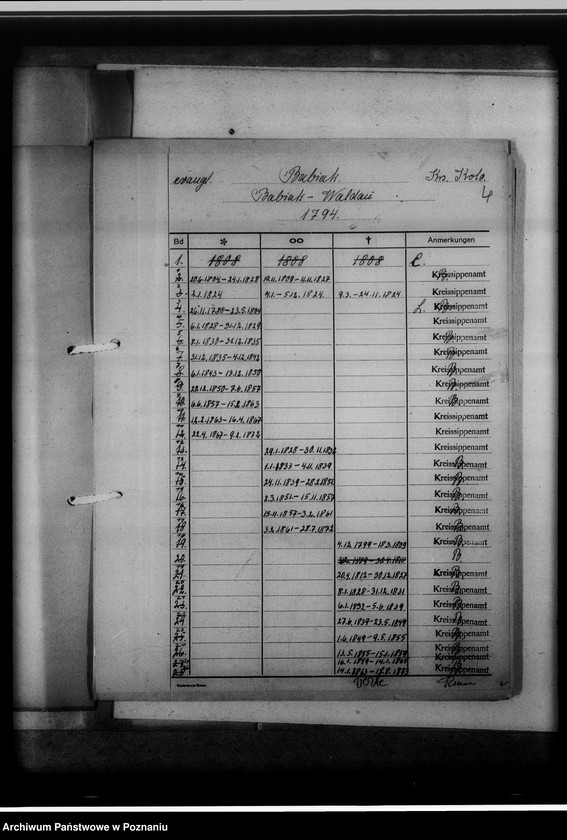 evangl. Babiak. Krs. Kolo.
Babiak - Waldau 4
1794.
Bd * ∞ † Anmerkungen
1. 1808 1808 1808 C.
20.6.1804-24.1.1828 19.11.1809-11.11.1827 Kreissippenamt
2.1.1824 4.1.-5.12.1824 9.3.-24.11.1824 Kreissippenamt
26.11.1780-23.5.1804 L. Kreissippenamt
6.1.1828-31.12.1829 Kreissippenamt
8.1.1830-31.12.1835 Kreissippenamt
31.12.1835-4.12.1842 Kreissippenamt
6.1.1843-13.12.1850 Kreissippenamt
22.12.1850-7.6.1857 Kreissippenamt
6.6.1857-15.2.1863 Kreissippenamt
12.2.1863-16.4.1867 Kreissippenamt
22.4.1867-9.2.1872 Kreissippenamt
29.1.1828-30.11.1832 Kreissippenamt
14. 1.1.1833-4.11.1839 Kreissippenamt
24.11.1839-28.2.1850 Kreissippenamt
16. 2.3.1851-15.11.1857 Kreissippenamt
15.11.1857-3.2.1861 Kreissippenamt
3.2.1861-28.7.1872 Kreissippenamt
19. 4.12.1799-18.3.1809 Kreissippenamt
20. B
21. 20.4.1812-30.12.1827 Kreissippenamt
22. 8.1.1828-31.12.1831 Kreissippenamt
23. 6.1.1832-5.6.1839 Kreissippenamt
24. 27.6.1839-23.5.1849 Kreissippenamt
1.6.1849-9.5.1855 Kreissippenamt
Kreissippenamt
Kreissippenamt
Kreissippenamt
Archiwum Państwowe w Poznaniu